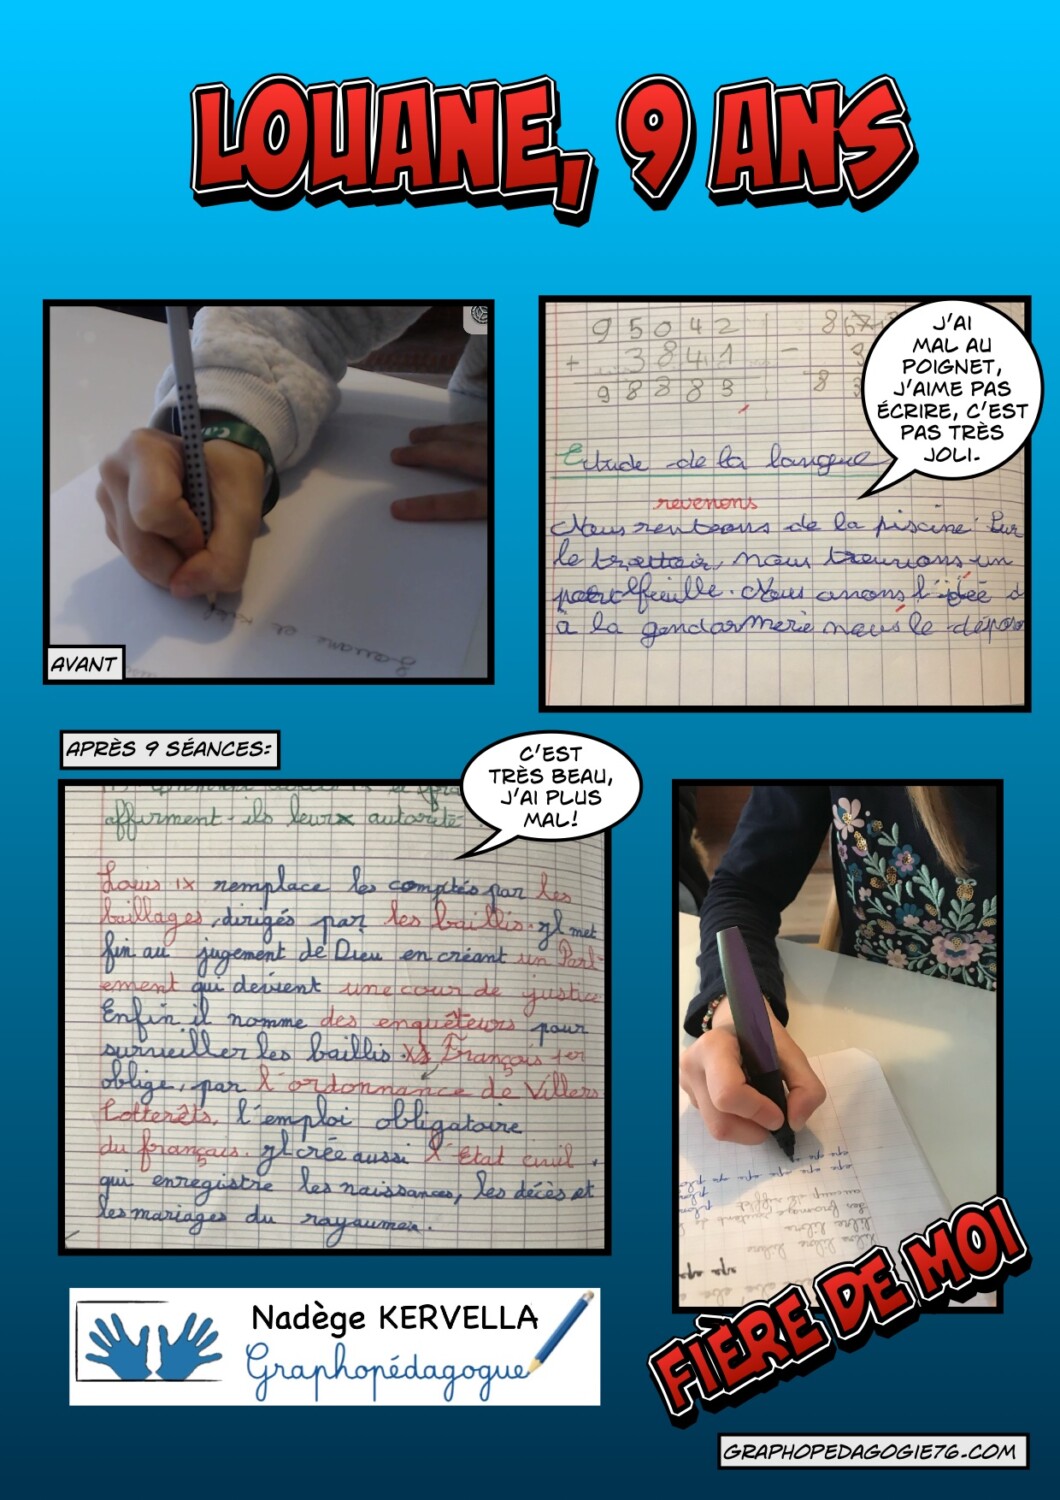 LOUANE, 9 ANS
95042
+ 3841
98883
8
-
8
J'AI
MAL AU
POIGNET,
J'AIME PAS
ÉCRIRE, C'EST
PAS TRÈS
JOLI.
Etude de la langue
revenons
Nous rentrons de la piscine. Sur
le trottoir, nous trouvons un
portefeuille. Nous avons l'idée d
à la gendarmerie nous le dépos
AVANT
APRÈS 9 SÉANCES:
C'EST
TRÈS BEAU,
J'AI PLUS
MAL!
affirment-ils leur autorité
Louis IX remplace les comptés par les
baillages, dirigés par les baillis. Il met
fin au jugement de Dieu en créant un Parl-
ement qui devient une cour de justice
Enfin il nomme des enquêteurs pour
surveiller les baillis. François 1er
oblige, par l'ordonnance de Villers
Cotterêts, l'emploi obligatoire
du français. Il crée aussi l'Etat civil,
qui enregistre les naissances, les décès et
les mariages du royaume.
FIÈRE DE MOI
Nadège KERVELLA
Graphopédagogue
GRAPHOPEDAGOGIE76.COM